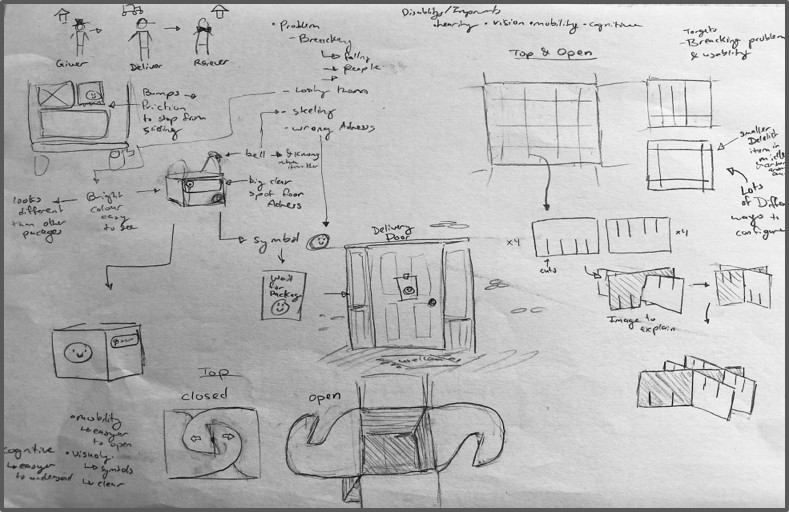 Giver
Deliver
Reiever
• Problem
- Breackey
↳ falling
→ people
→
- Loosing them
- steling
- wrong Adress
Disability/Impaments
• hearing • vision • mobility • cognitive
Top & Open
Targets
- Breacking problem
& usability
Bumps →
friction
to stop from
sliding
bell →
big clear
spot foor
Adress
looks
different
than other
packages
Bright
colour
easy
to see
symbol
Wait
for
Package
Delivery
Door
welcome
x4
x4
cuts
Image to
explain
smaller
item in
Lots
of Differ
ways to
configure
Top
closed
open
• mobility
↳ easyer
to open
• Visualy
↳ symbols
↳ clear
cognitive
↳ easyer
to understand